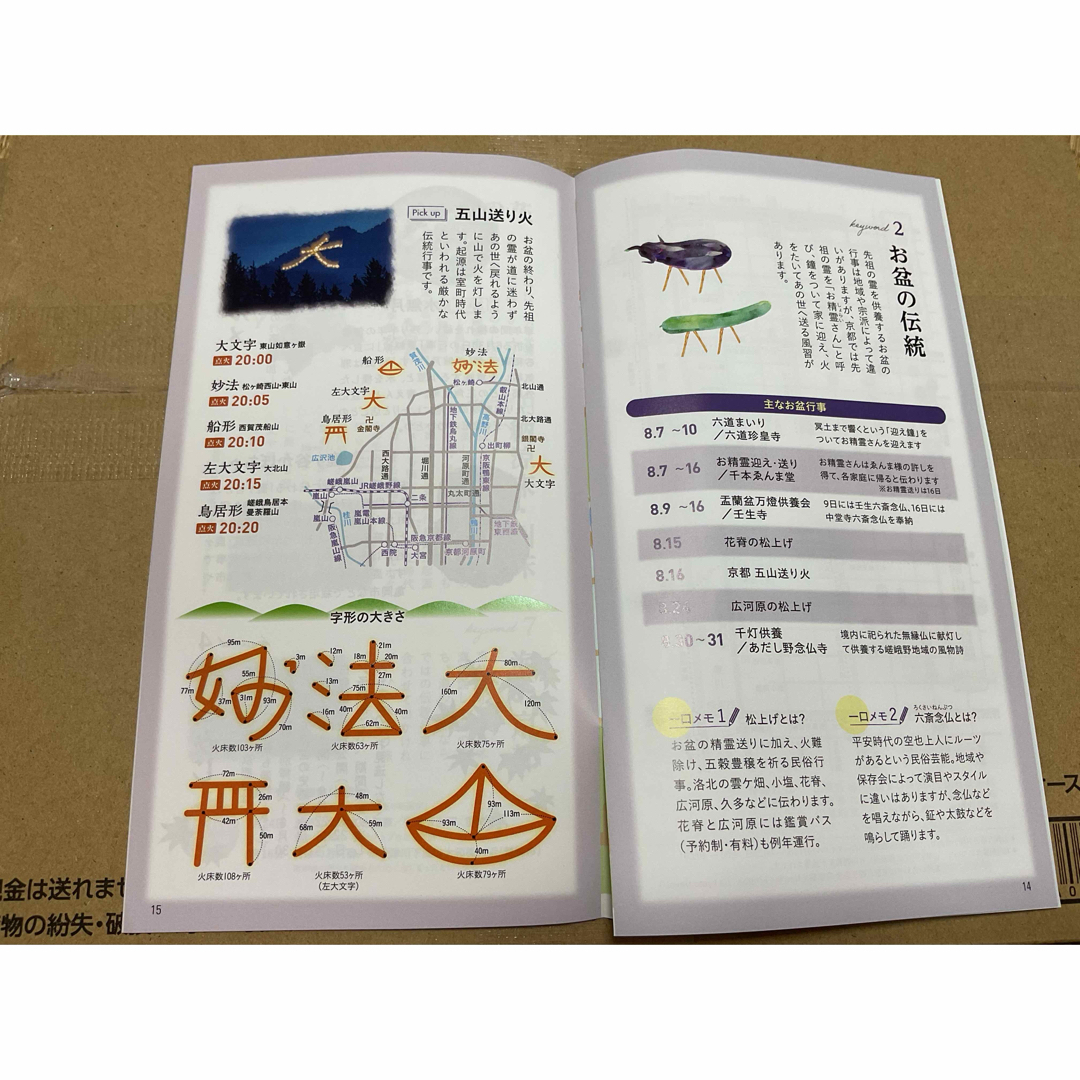 keyword 2
お盆の伝統
先祖の霊を供養するお盆の
行事は地域や宗派によって違
いがありますが、京都では先
祖の霊を「お精霊さん」と呼
び、鐘をついて家に迎え、火
をたいてあの世へ送る風習が
あります。
主なお盆行事
8.7 ~10
六道まいり
/六道珍皇寺
冥土まで響くという「迎え鐘」を
ついてお精霊さんを迎えます
8.7 ~16
お精霊迎え・送り
/千本ゑんま堂
お精霊さんはゑんま様の許しを
得て、各家庭に帰ると伝わります
※お精霊送りは16日
8.9 ~16
盂蘭盆万燈供養会
/壬生寺
9日には壬生六斎念仏、16日には
中堂寺六斎念仏を奉納
8.15
花脊の松上げ
8.16
京都 五山送り火
広河原の松上げ
~31
千灯供養
/あだし野念仏寺
境内に祀られた無縁仏に献灯し
て供養する嵯峨野地域の風物詩
一口メモ1 松上げとは?
お盆の精霊送りに加え、火難
除け、五穀豊穣を祈る民俗行
事。洛北の雲ケ畑、小塩、花脊、
広河原、久多などに伝わります。
花脊と広河原には鑑賞バス
(予約制・有料)も例年運行。
一口メモ2 六斎念仏とは?
ろくさいねんぶつ
平安時代の空也上人にルーツ
があるという民俗芸能。地域や
保存会によって演目やスタイル
に違いはありますが、念仏など
を唱えながら、鉦や太鼓などを
鳴らして踊ります。
14
Pick up 五山送り火
お盆の終わり、先祖
の霊が道に迷わず
あの世へ戻れるよう
に山で火を灯しま
す。起源は室町時代
といわれる厳かな
伝統行事です。
大文字 東山如意ヶ嶽
点火 20:00
妙法 松ヶ崎西山・東山
点火 20:05
船形 西賀茂船山
点火 20:10
左大文字 大北山
点火 20:15
鳥居形 嵯峨鳥居本
曼荼羅山
点火 20:20
船形
賀茂川
妙法
妙法
松ヶ崎
叡山本線
北山通
左大文字
大
鳥居形
金閣寺
地下鉄烏丸線
高野川
北大路通
出町柳
銀閣寺
大
大文字
広沢池
西大路通
堀川通
河原町通
京阪鴨東線
丸太町通
嵯峨嵐山
JR嵯峨野線
二条
嵐山
嵐山
桂川
嵐電
嵐山本線
鴨川
地下鉄
東西線
阪急嵐山線
西院
大宮
阪急京都線
京都河原町
字形の大きさ
妙
95m
77m
55m
37m
31m
93m
70m
火床数103ヶ所
法
3m
12m
13m
16m
21m
18m
20m
27m
75m
40m
40m
62m
火床数63ヶ所
大
80m
160m
120m
火床数75ヶ所
72m
26m
42m
50m
火床数108ヶ所
大
48m
68m
59m
火床数53ヶ所
(左大文字)
93m
93m
113m
40m
火床数79ヶ所
15
金は送れませ
物の紛失・破
ース